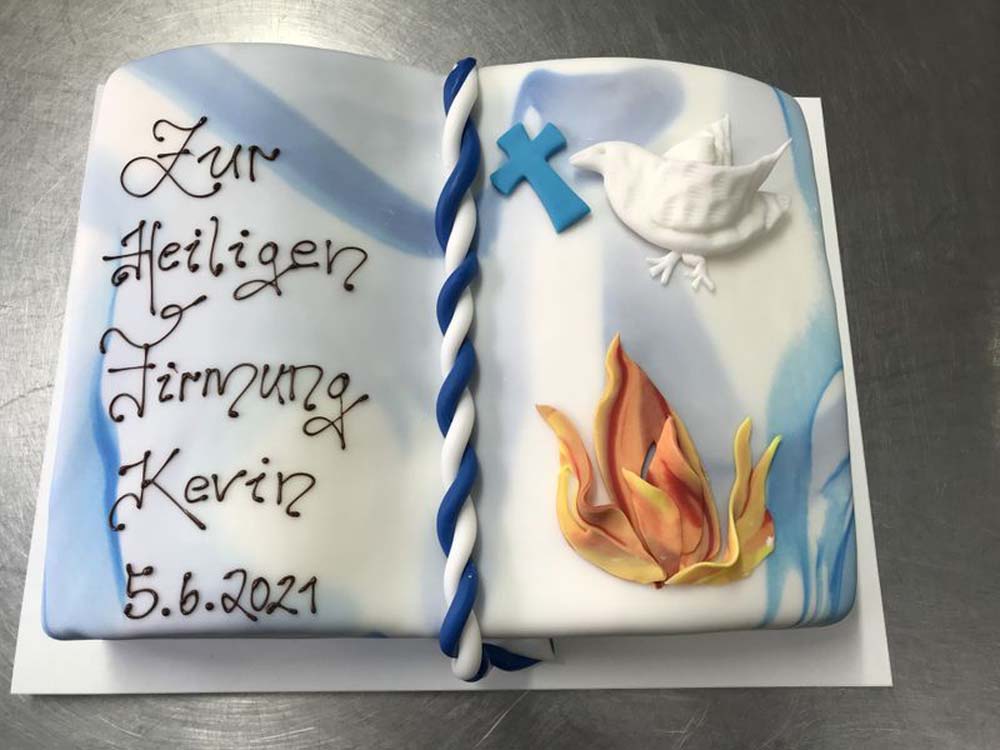 Zur
Heiligen
Firmung
Kevin
5.6.2021